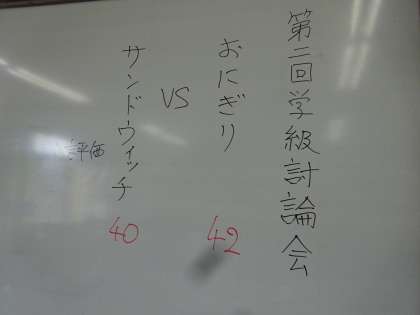 第二回学級討論会
おにぎり 42
VS
サンドウィッチ 40
評価